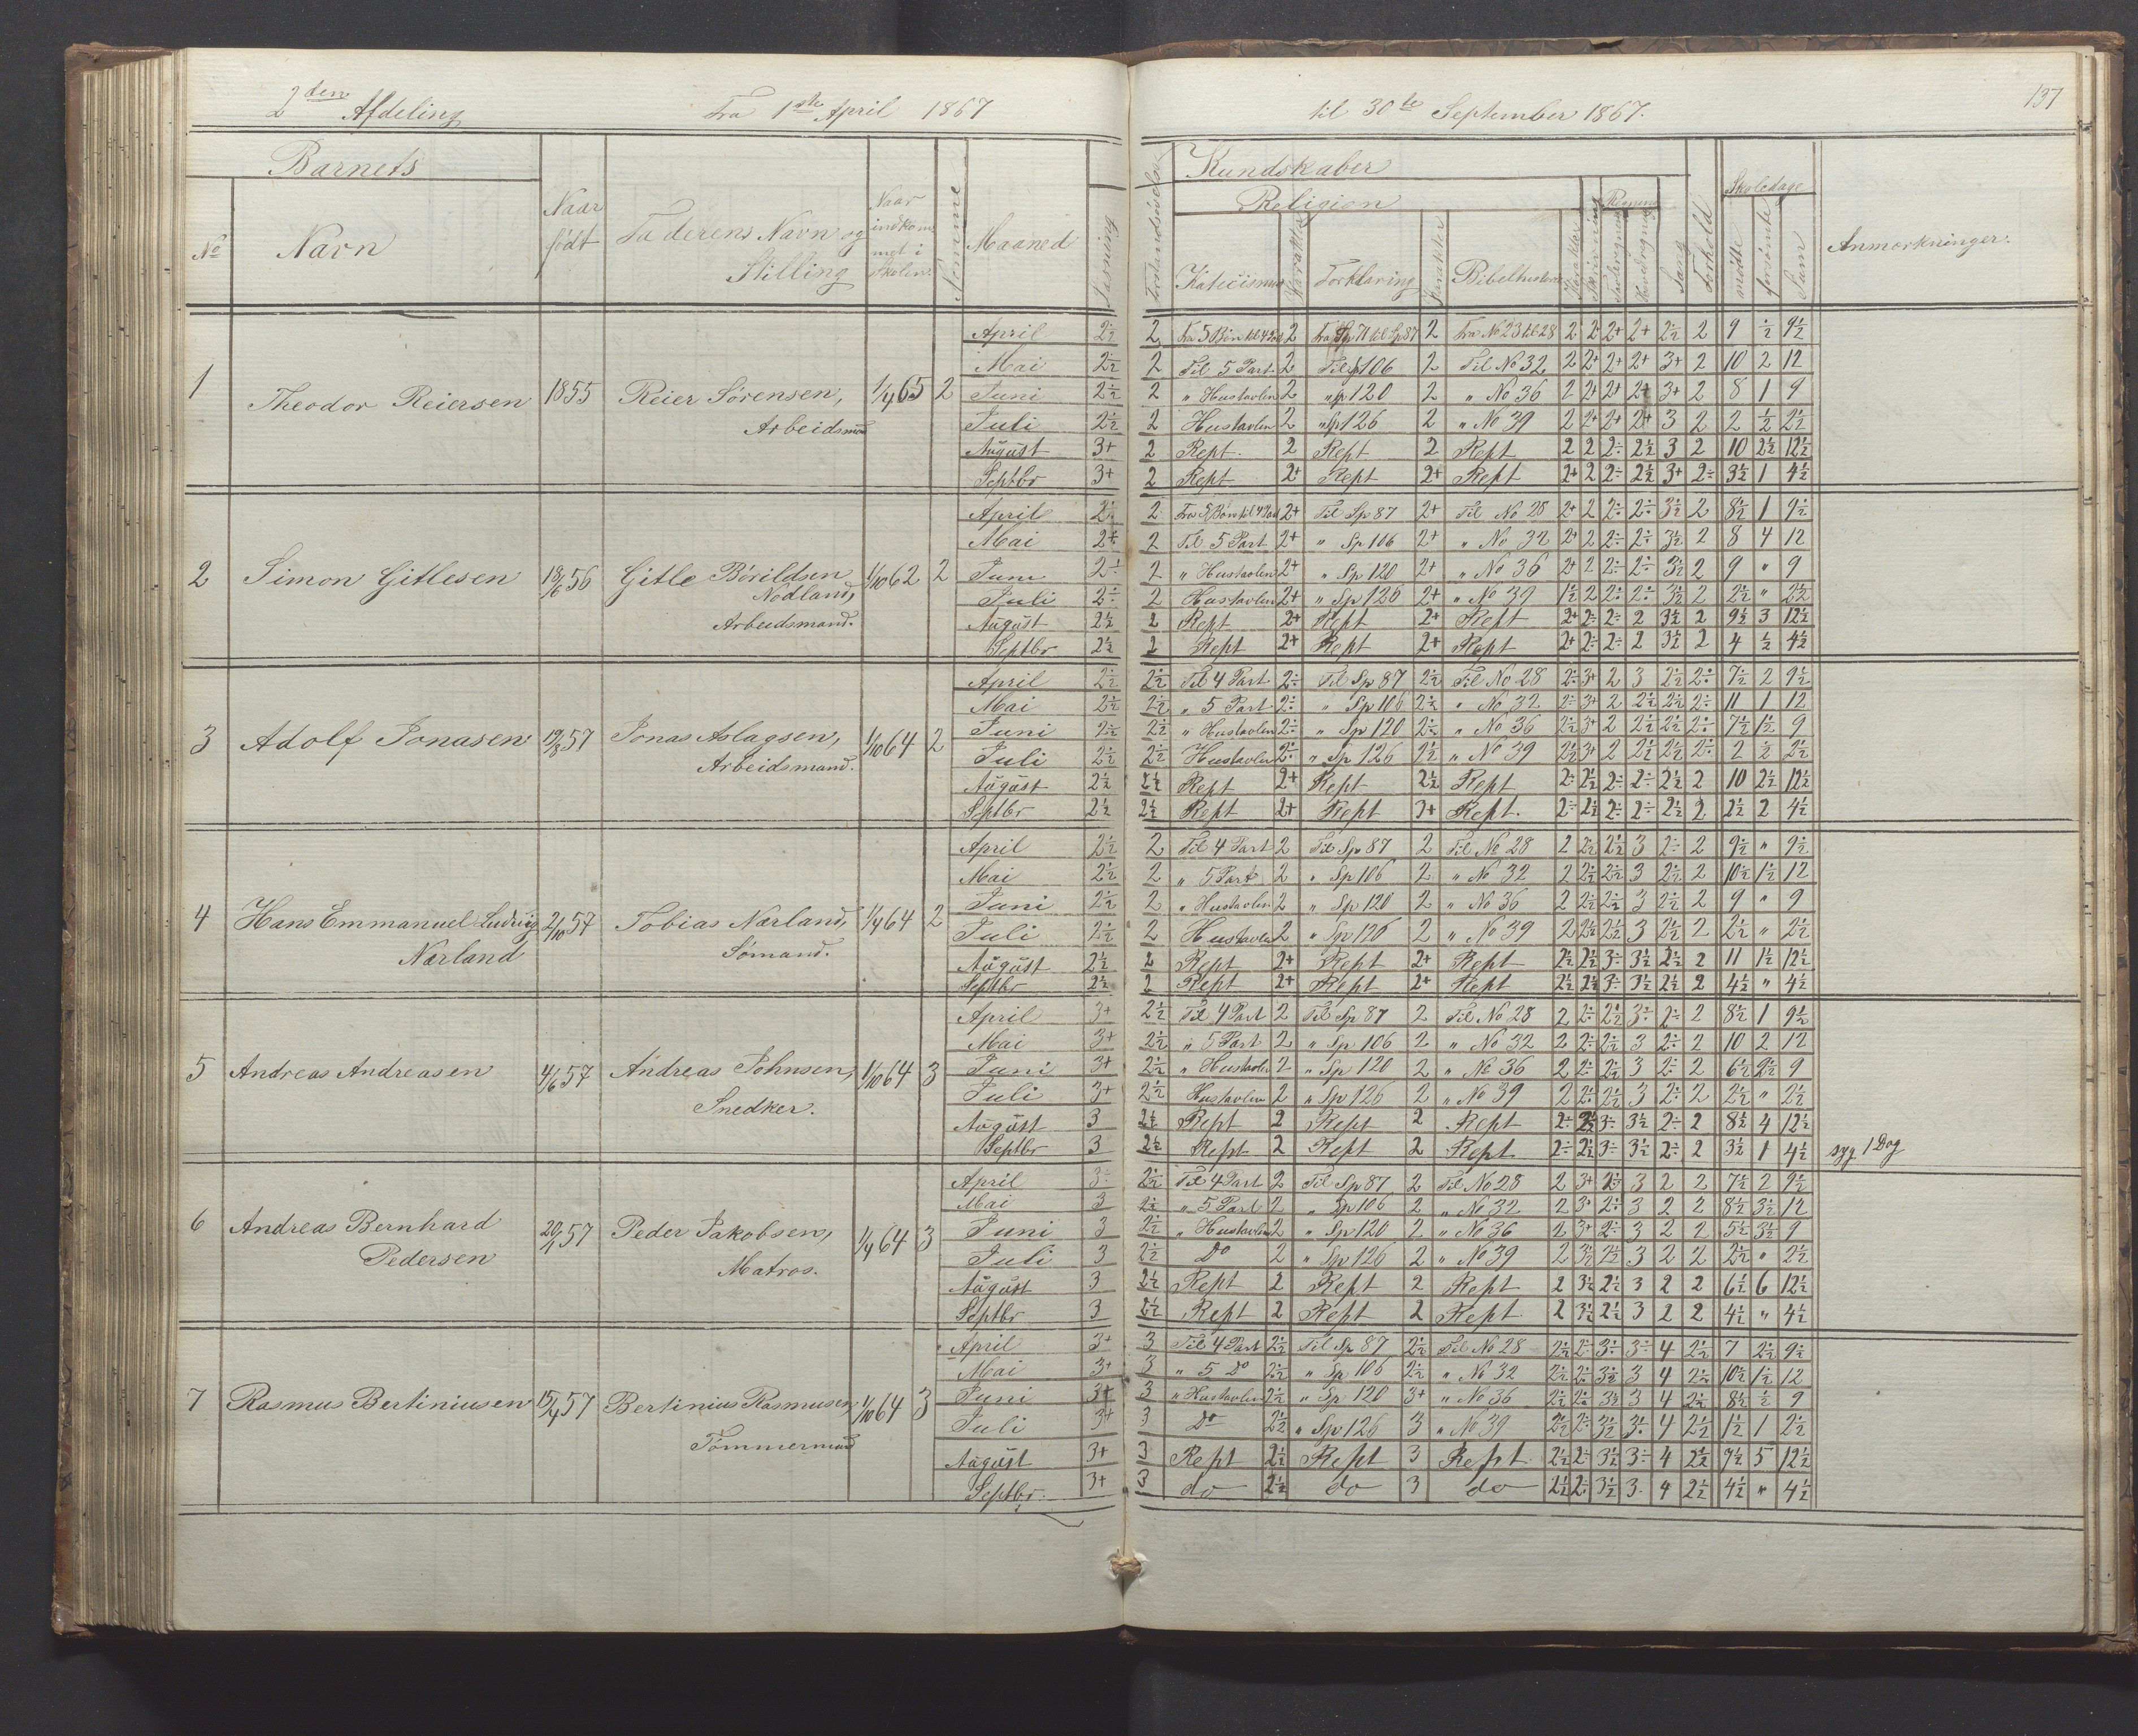 2den Afdeling Fra 1ste April 1867 til 30te September 1867. 137
Barnets Naar født Faderens Navn og Stilling Naar indkommet i Skolen Maaned Læsning Kundskaber Religion Skoledage Anmærkninger.
No Navn Katecismus Karakter Forklaring Karakter Bibelhistorie Sang Forhold mødte forsømte Sum
1 Theodor Reiersen 1855 Reier Sørensen, Arbeidsmd 1/4 65 2
April 2½ 2 2 2 Fra No 23 til 28 2 2 2+ 2+ 2½ 2 9 ½ 9½
Mai 2½ 2 Til 5 Part 2 Til Sp 106 2 Til No 32 2 2+ 2+ 2+ 3+ 2 10 2 12
Juni 2½ 2 " Hustavlen 2 " Sp 120 2 " No 36 2 2+ 2+ 2+ 3+ 2 8 1 9
Juli 2½ 2 Hustavlen 2 " Sp 126 2 " No 39 2 2+ 2+ 2+ 3 2 2 ½ 2½
August 3+ 2 Rept. 2 Rept 2 Rept 2 2 2÷ 2½ 3 2 10 2½ 12½
Septbr 3+ 2 Rept 2+ Rept 2+ Rept 2+ 2 2÷ 2½ 3+ 2÷ 3½ 1 4½
2 Simon Gitlesen 18/6 56 Gitle Børildsen Nødland, Arbeidsmand. 1/10 62 2
April 2÷ 2 2+ Til Sp 87 2+ Til No 28 2+ 2 2÷ 2÷ 3½ 2 8½ 1 9½
Mai 2+ 2 Til 5 Part 2+ " Sp 106 2+ " No 32 2+ 2 2÷ 2÷ 3½ 2 8 4 12
Juni 2÷ 2 " Hustavlen 2+ " Sp 120 2+ " No 36 2+ 2 2÷ 2÷ 3½ 2 9 " 9
Juli 2÷ 2 Hustavlen 2+ " Sp 126 2+ " No 39 1½ 2 2÷ 2÷ 3½ 2 2½ " 2½
August 2½ 2 Rept 2+ Rept 2+ Rept 2+ 2÷ 2÷ 2 3½ 2 9½ 3 12½
Septbr 2½ 2 Rept 2+ Rept 2+ Rept 2+ 2÷ 2÷ 2 3½ 2 4 ½ 4½
3 Adolf Jonasen 19/8 57 Jonas Aslagsen, Arbeidsmand. 1/10 64 2
April 2½ 2½ Til 4 Part 2÷ Til Sp 87 2½ Til No 28 2÷ 3+ 2 3 2½ 2÷ 7½ 2 9½
Mai 2½ 2½ " 5 Part 2÷ " Sp 106 2½ " No 32 2÷ 3+ 2 2½ 2½ 2÷ 11 1 12
Juni 2½ 2½ " Hustavlen 2÷ " Sp 120 2½ " No 36 2½ 3+ 2 2½ 2½ 2÷ 7½ 1½ 9
Juli 2½ 2½ Hustavlen 2÷ " Sp 126 2½ " No 39 2½ 3+ 2 2½ 2½ 2÷ 2 ½ 2½
August 2½ 2½ Rept 2+ Rept 2½ Rept 2÷ 2½ 2÷ 2÷ 2½ 2 10 2½ 12½
Septbr 2½ 2½ Rept 2+ Rept 3+ Rept. 2÷ 2½ 2÷ 2÷ 2½ 2 2½ 2 4½
4 Hans Emmanuel Ludvig Nærland 2/10 57 Tobias Nærland, Sømand. 1/4 64 2
April 2½ 2 Til 4 Part 2 Til Sp 87 2 Til No 28 2 2½ 2½ 3 2÷ 2 9½ " 9½
Mai 2½ 2 " 5 Part 2 " Sp 106 2 " No 32 2 2½ 2½ 3 2½ 2 10½ 1½ 12
Juni 2½ 2 " Hustavlen 2 " Sp 120 2 " No 36 2 2½ 2½ 3 2½ 2 9 " 9
Juli 2½ 2 Hustavlen 2 " Sp 126 2 " No 39 2 2½ 2½ 3 2½ 2 2½ " 2½
August 2½ 2 Rept 2+ Rept 2+ Rept 2½ 2½ 3÷ 3½ 2½ 2 11 1½ 12½
Septbr 2½ 2 Rept 2+ Rept 2+ Rept 2½ 2½ 3÷ 3½ 2½ 2 4½ " 4½
5 Andreas Andreasen 4/6 57 Andreas Johnsen, Snedker. 1/10 64 3
April 3+ 2½ Til 4 Part 2 Til Sp 87 2 Til No 28 2 2÷ 2½ 3÷ 2÷ 2 8½ 1 9½
Mai 3+ 2½ " 5 Part 2 " Sp 106 2 " No 32 2 2÷ 2½ 3 2÷ 2 10 2 12
Juni 3+ 2½ " Hustavlen 2 " Sp 120 2 " No 36 2 2÷ 2½ 3 2÷ 2 6½ 2½ 9
Juli 3+ 2½ Hustavlen 2 " Sp 126 2 " No 39 2 2÷ 2½ 3 2÷ 2 2½ " 2½
August 3 2½ Rept 2 Rept 2 Rept 2÷ 2½ 3÷ 3½ 2÷ 2 8½ 4 12½
Septbr 3 2½ Rept 2 Rept 2 Rept 2÷ 2½ 3÷ 3½ 2÷ 2 3½ 1 4½ syg 1 Dag
6 Andreas Bernhard Pedersen 20/1 57 Peder Jakobsen, Matros. 1/4 64 3
April 3÷ 2½ Til 4 Part 2 Til Sp 87 2 Til No 28 2 3+ 2½ 3 2 2 7½ 2 9½
Mai 3 2½ " 5 Part 2 " Sp 106 2 " No 32 2 3+ 2÷ 3 2 2 8½ 3½ 12
Juni 3 2½ " Hustavlen 2 " Sp 120 2 " No 36 2 3+ 2÷ 3 2 2 5½ 3½ 9
Juli 3 2½ Do 2 " Sp 126 2 " No 39 2 3½ 2½ 3 2 2 2½ " 2½
August 3 2½ Rept 2 Rept 2 Rept 2 3½ 2½ 3 2 2 6½ 6 12½
Septbr 3 2½ Rept 2 Rept 2 Rept 2 3½ 2½ 3 2 2 4½ " 4½
7 Rasmus Bertiniusen 15/4 57 Bertinius Rasmusen, Tømmermand 1/10 64 3
April 3+ 3 Til 4 Part 2½ Til Sp 87 2½ Til No 28 2½ 2÷ 3÷ 3÷ 4 2½ 7 2½ 9½
Mai 3+ 3 " 5 Do 2½ " Sp 106 2½ " No 32 2½ 2÷ 3½ 3 4 2½ 10½ 1½ 12
Juni 3+ 3 " Hustavlen 2½ " Sp 120 3+ " No 36 2½ 2÷ 3½ 3 4 2½ 8½ ½ 9
Juli 3+ 3 Do 2½ " Sp 126 3 " No 39 2½ 2÷ 3½ 3÷ 4 2½ 1½ 1 2½
August 3+ 3 Rept 2½ Rept 3 Rept 2½ 2÷ 3½ 3÷ 4 2½ 7½ 5 12½
Septbr. 3+ 3 do 2½ do 3 do 2½ 2÷ 3½ 3÷ 4 2½ 4½ " 4½